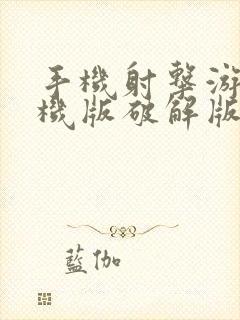 手機射擊游
機版破解版
藍伽